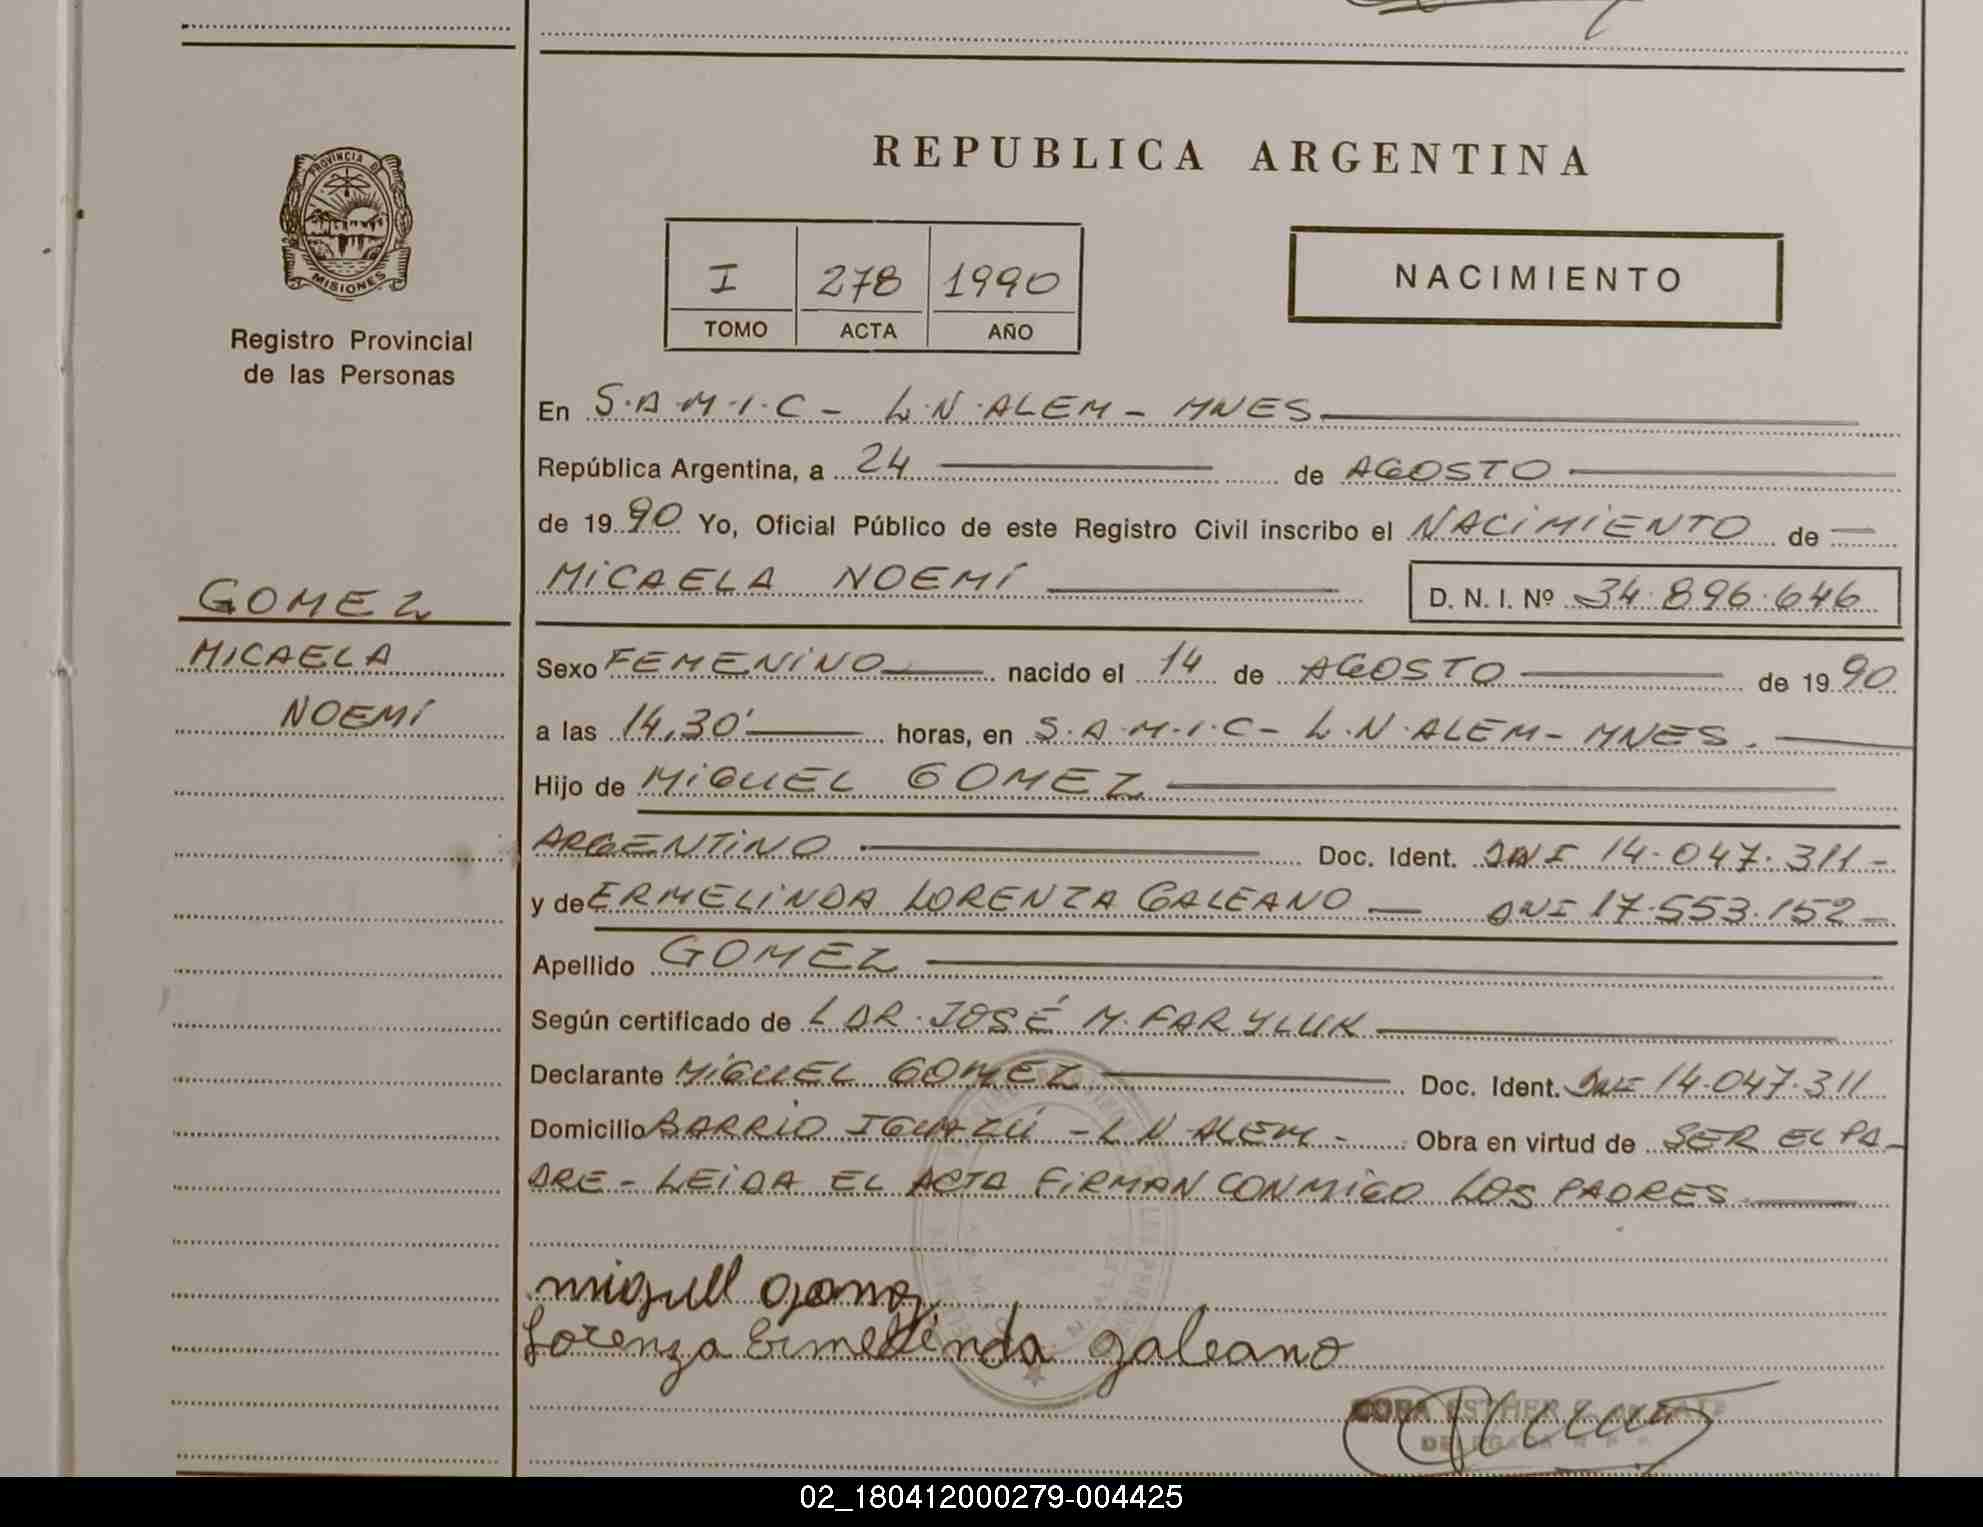 REPUBLICA ARGENTINA
PROVINCIA DE
MISIONES
Registro Provincial
de las Personas
I 278 1990
TOMO ACTA AÑO
NACIMIENTO
En S.A.M.I.C - L.N.ALEM - MNES
República Argentina, a 24 de AGOSTO
de 1990 Yo, Oficial Público de este Registro Civil inscribo el NACIMIENTO de
MICAELA NOEMÍ D. N. I. Nº 34.896.646
GOMEZ
MICAELA
NOEMÍ
Sexo FEMENINO nacido el 14 de AGOSTO de 1990
a las 14,30' horas, en S.A.M.I.C - L.N.ALEM - MNES.
Hijo de MIGUEL GOMEZ
ARGENTINO Doc. Ident. DNI 14.047.311-
y de ERMELINDA LORENZA GALEANO - DNI 17.553.152-
Apellido GOMEZ
Según certificado de L DR. JOSÉ M. FARYLUK
Declarante MIGUEL GOMEZ Doc. Ident. DNI 14.047.311
Domicilio BARRIO IGUAZÚ - L N ALEM - Obra en virtud de SER EL PA-
DRE - LEIDA EL ACTA FIRMAN CONMIGO LOS PADRES
miguell gomez
Lorenza Ermelinda galeano
ESTHER
DELEGADA
02_180412000279-004425